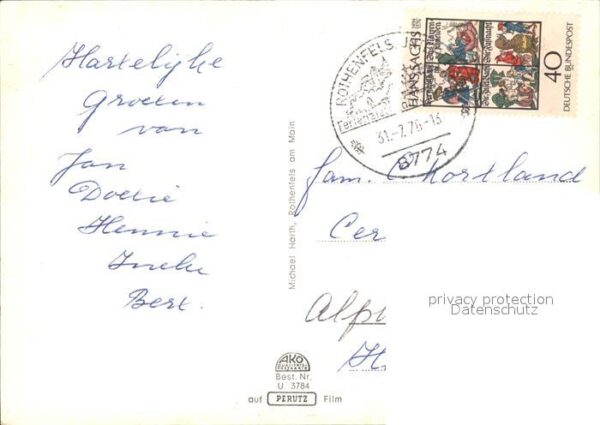 Hartelijke
Groeten
van
Jan
Doetie
Hennie
Ineke
Bert.
ROTHENFELS
Ferienziel
31.-7.76-13
8774
HANS SACHS
40
DEUTSCHE BUNDESPOST
fam. Mortland
Cer
Alp
H
Michael Harth, Rothenfels am Main
privacy protection
Datenschutz
AKO
Best. Nr.
U 3784
auf PERUTZ Film